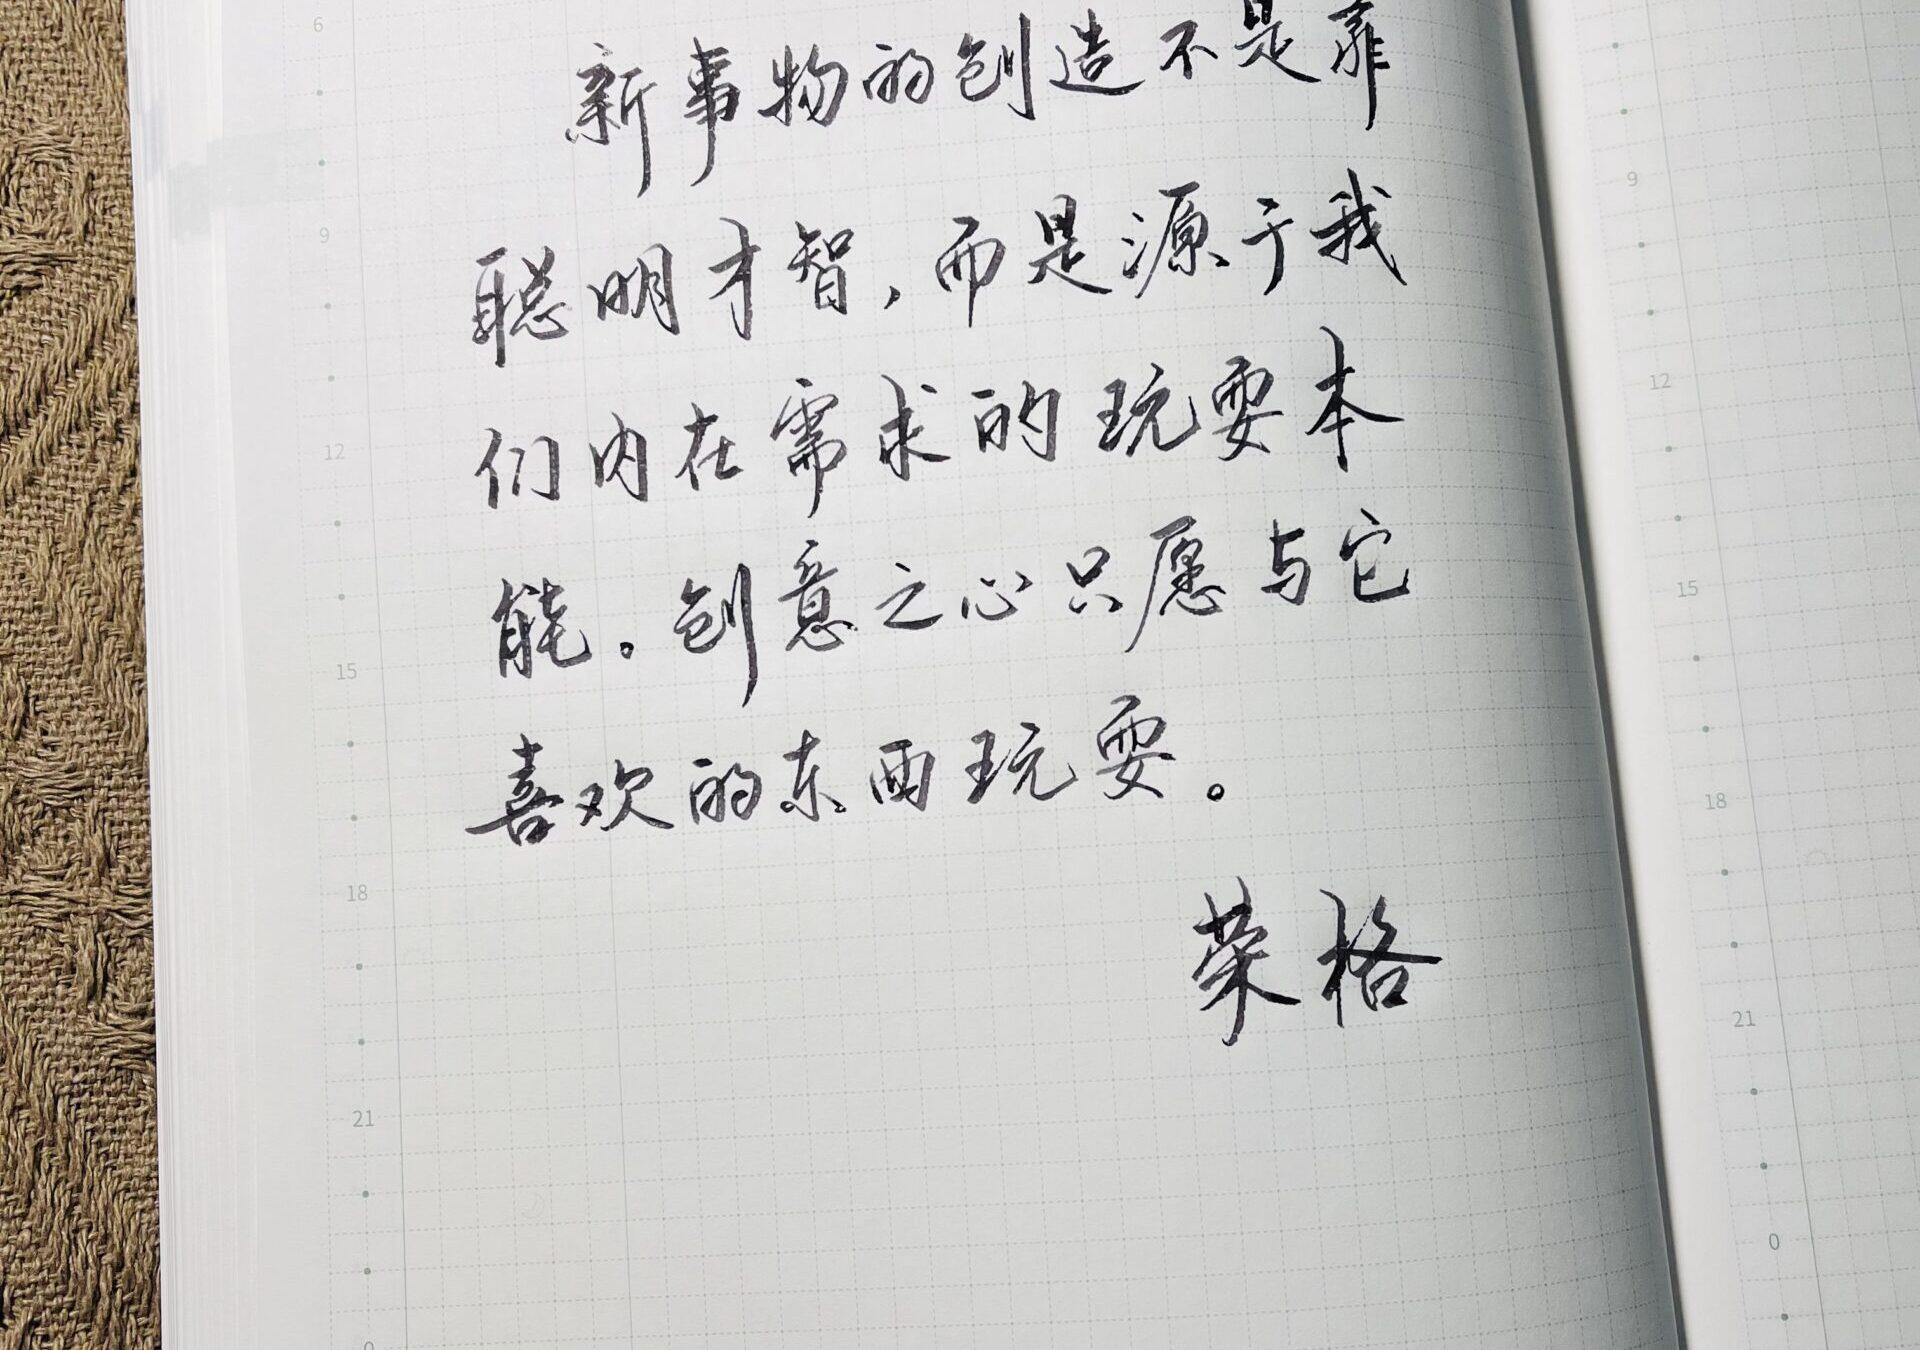 新事物的创造不是靠
聪明才智，而是源于我
们内在需求的玩耍本
能。创意之心只愿与它
喜欢的东西玩耍。
荣格
6
9
12
15
18
21
0
9
12
15
18
21
0